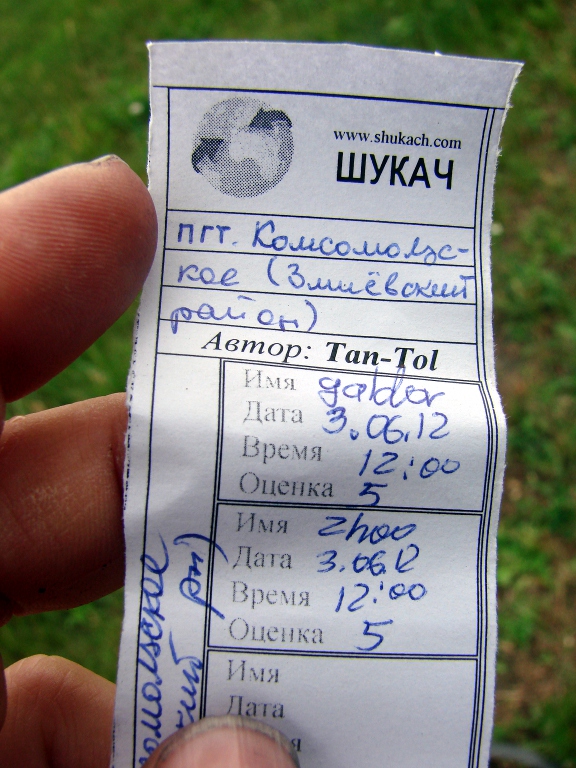 www.shukach.com
ШУКАЧ
пгт. Комсомольс-
кое (Змиёвский
район)
Автор: Tan-Tol
Имя galdor
Дата 3.06.12
Время 12:00
Оценка 5
Имя zhoo
Дата 3.06.12
Время 12:00
Оценка 5
Имя
Дата
омольское
ский рн)